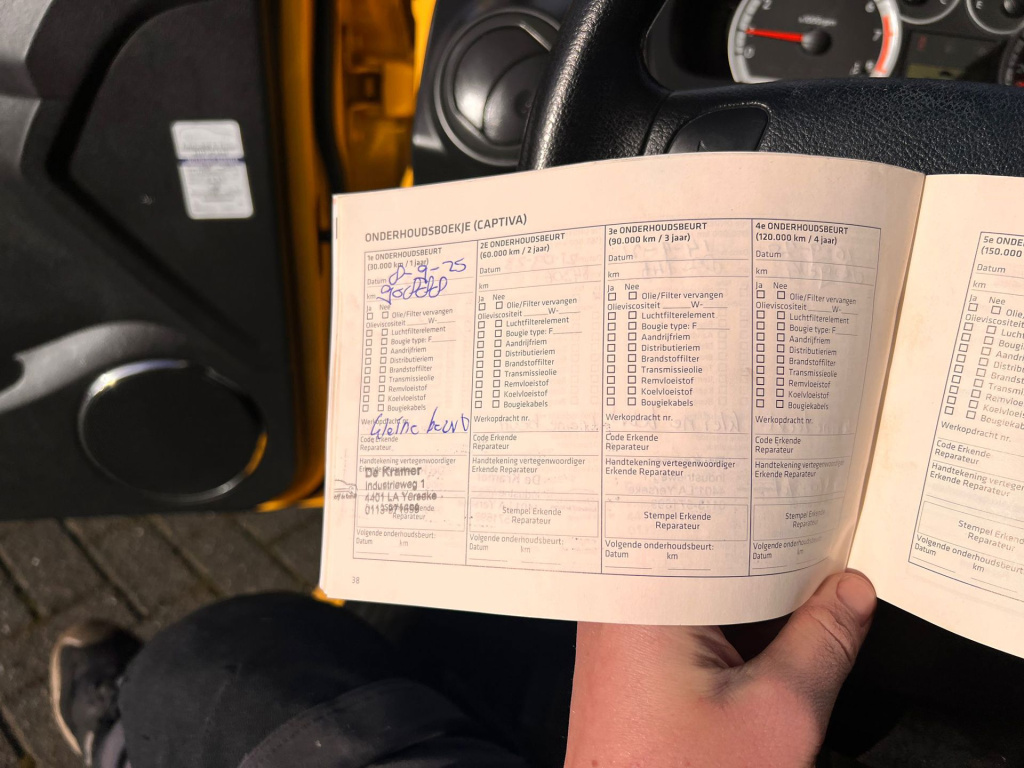 ONDERHOUDSBOEKJE (CAPTIVA)
1e ONDERHOUDSBEURT
(30.000 km / 1 jaar)
Datum 8-9-25
km
Ja Nee
Olie/Filter vervangen
Olieviscositeit W-
Luchtfilterelement
Bougie type: F
Aandrijfriem
Distributieriem
Brandstoffilter
Transmissieolie
Remvloeistof
Koelvloeistof
Bougiekabels
Werkopdracht nr.
kleine beurt
Code Erkende
Reparateur
Handtekening vertegenwoordiger
Erkende Reparateur
De Kramer
Industrieweg 1
4401 LA Yerseke
Reparateur
Volgende onderhoudsbeurt:
Datum km
2E ONDERHOUDSBEURT
(60.000 km / 2 jaar)
Datum
km
Ja Nee
Olie/Filter vervangen
Olieviscositeit W-
Luchtfilterelement
Bougie type: F
Aandrijfriem
Distributieriem
Brandstoffilter
Transmissieolie
Remvloeistof
Koelvloeistof
Bougiekabels
Werkopdracht nr.
Code Erkende
Reparateur
Handtekening vertegenwoordiger
Erkende Reparateur
Stempel Erkende
Reparateur
Volgende onderhoudsbeurt:
Datum km
3e ONDERHOUDSBEURT
(90.000 km / 3 jaar)
Datum
km
Ja Nee
Olie/Filter vervangen
Olieviscositeit W-
Luchtfilterelement
Bougie type: F
Aandrijfriem
Distributieriem
Brandstoffilter
Transmissieolie
Remvloeistof
Koelvloeistof
Bougiekabels
Werkopdracht nr.
Code Erkende
Reparateur
Handtekening vertegenwoordiger
Erkende Reparateur
Stempel Erkende
Reparateur
Volgende onderhoudsbeurt:
Datum km
4e ONDERHOUDSBEURT
(120.000 km / 4 jaar)
Datum
km
Ja Nee
Olie/Filter vervangen
Olieviscositeit W-
Luchtfilterelement
Bougie type: F
Aandrijfriem
Distributieriem
Brandstoffilter
Transmissieolie
Remvloeistof
Koelvloeistof
Bougiekabels
Werkopdracht nr.
Code Erkende
Reparateur
Handtekening vertegenwoordiger
Erkende Reparateur
Stempel Erkende
Reparateur
Volgende onderhoudsbeurt:
Datum km
38
5e ONDER
(150.000
Datum
km
Ja Nee
Olie/
Olieviscosite
Luch
Bougi
Aandri
Distrib
Brands
Transmis
Remvloe
Koelvloei
Bougiekab
Werkopdracht nr.
Code Erkende
Reparateur
Handtekening vertegen
Erkende Reparateur
Stempel Erkend
Reparateur
Volgende onderhoudsbeurt
Datum km